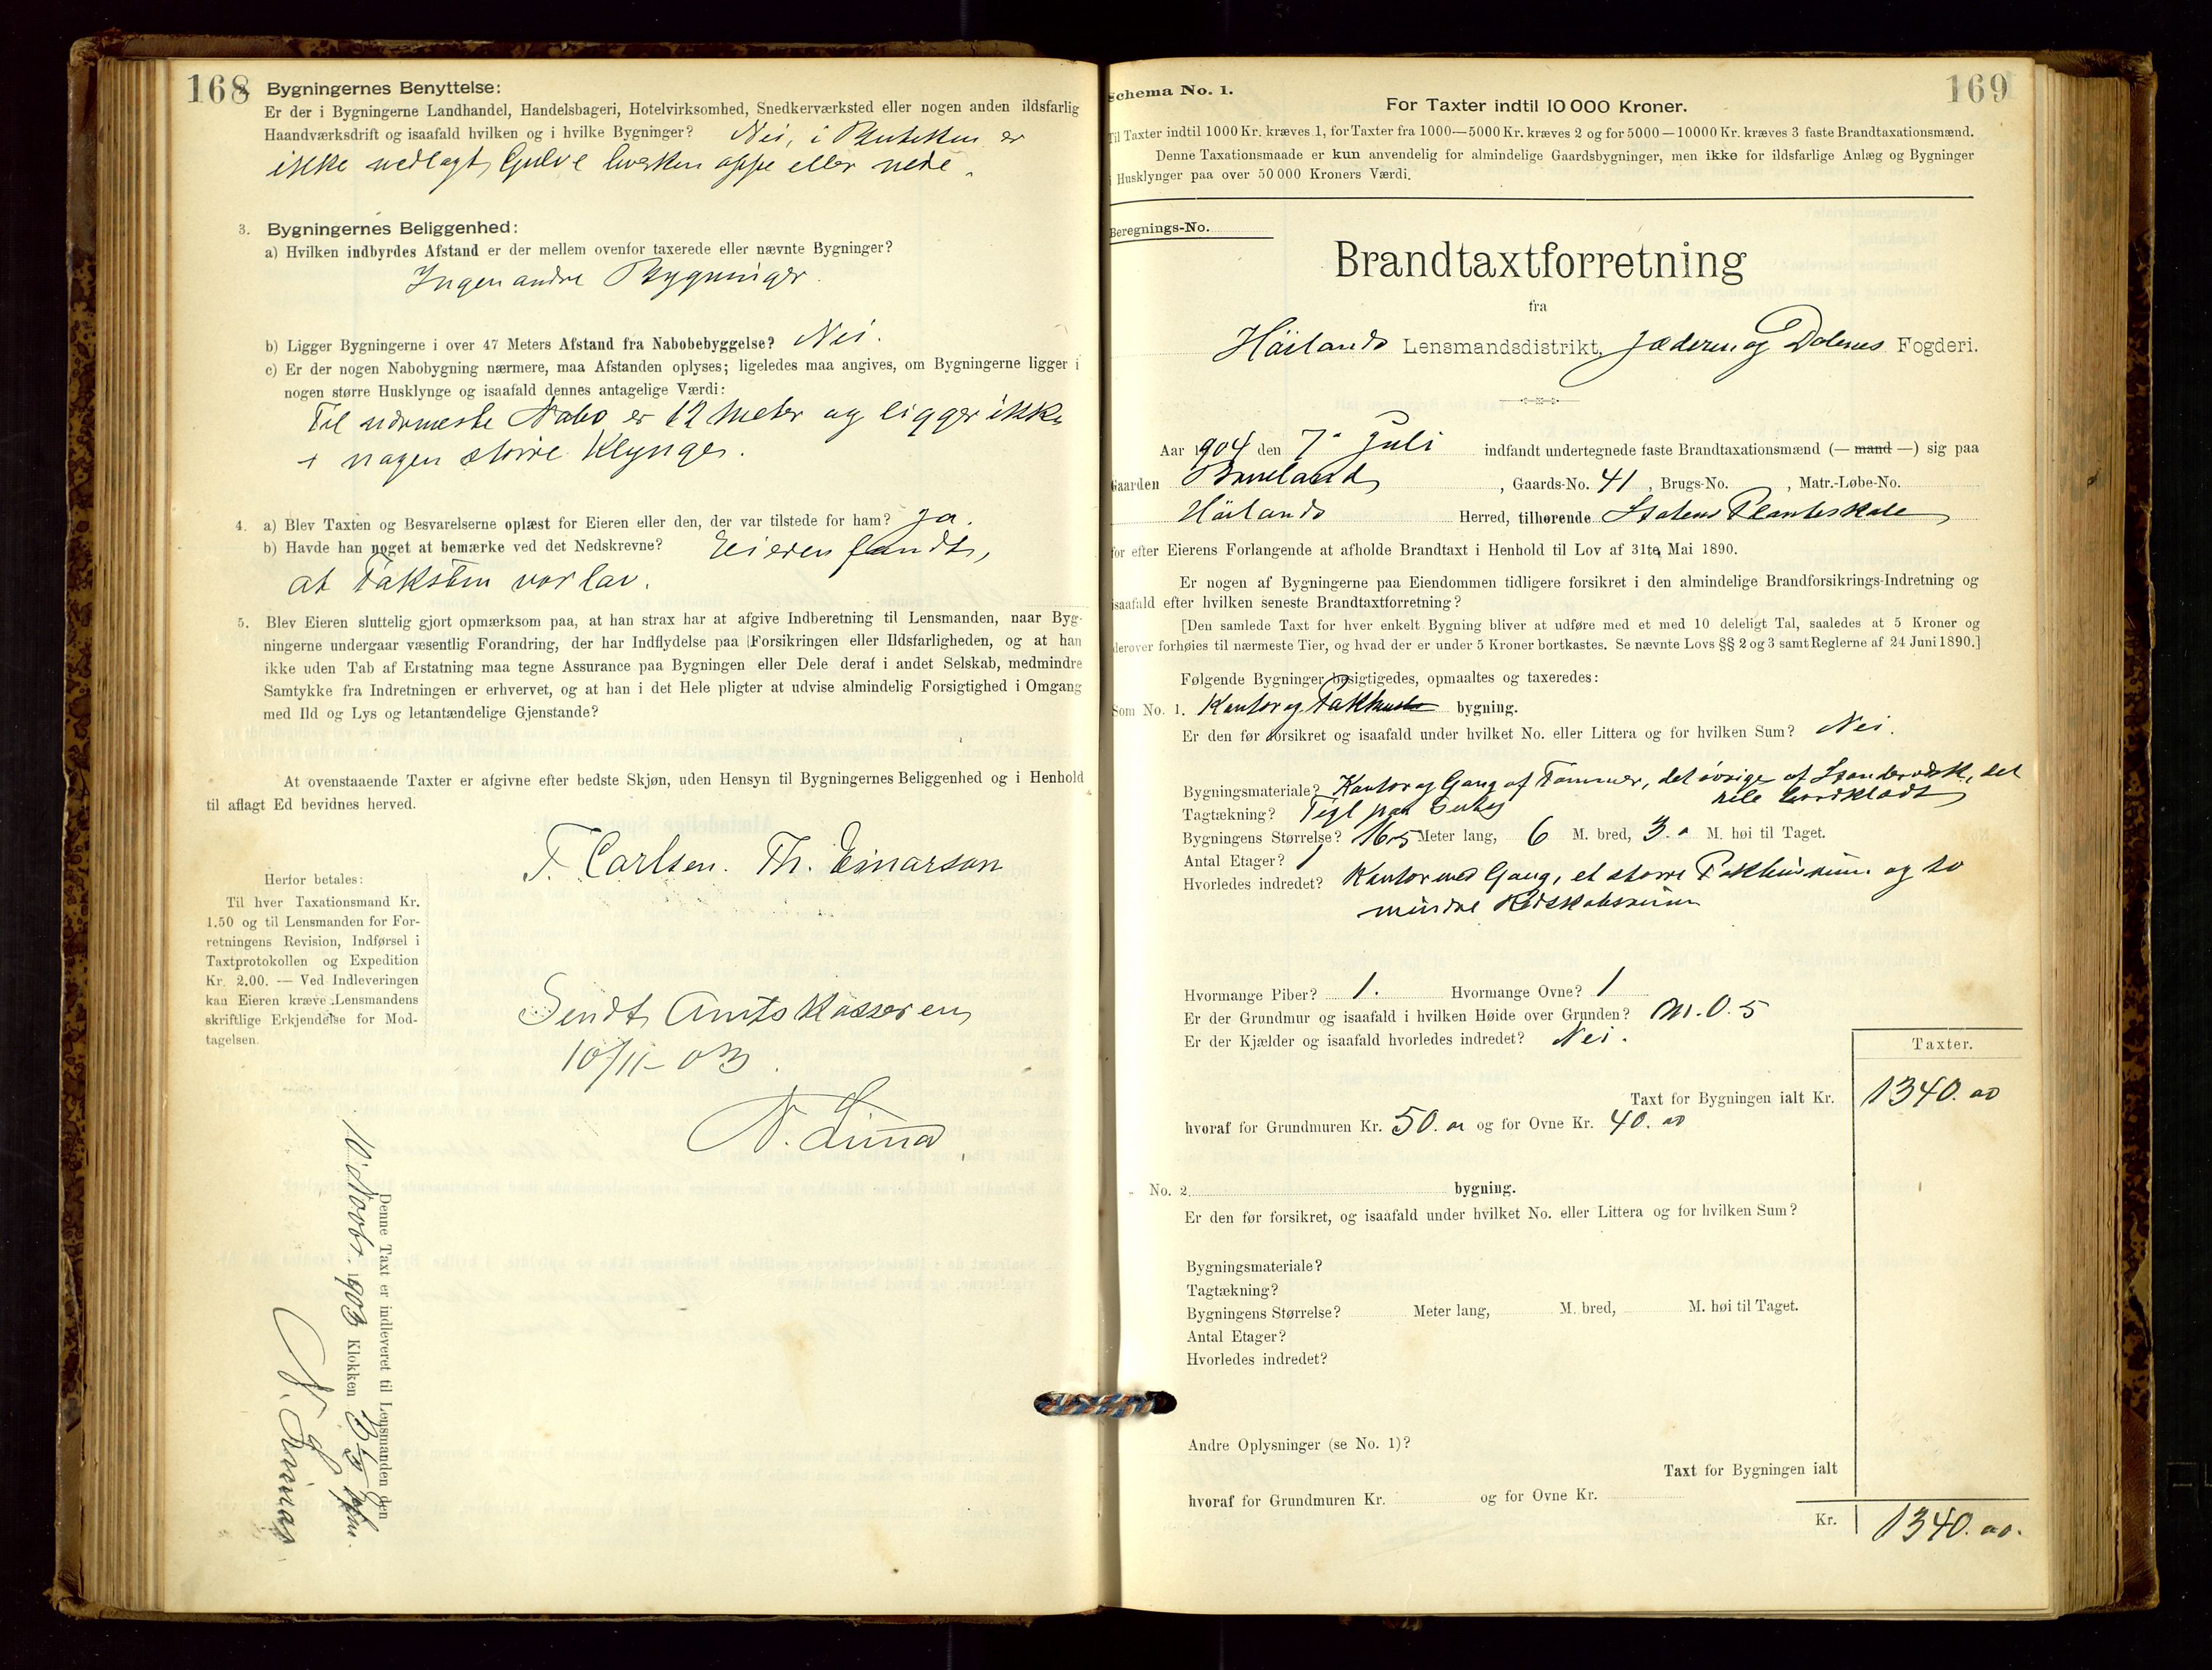 168
Bygningernes Benyttelse:
Er der i Bygningerne Landhandel, Handelsbageri, Hotelvirksomhed, Snedkerværksted eller nogen anden ildsfarlig
Haandværksdrift og isaafald hvilken og i hvilke Bygninger? Nei, i er
ikke nedlagt Gulve hverken oppe eller nede.
3. Bygningernes Beliggenhed:
a) Hvilken indbyrdes Afstand er der mellem ovenfor taxerede eller nævnte Bygninger?
Ingen andre Bygninger.
b) Ligger Bygningerne i over 47 Meters Afstand fra Nabobebyggelse? Nei.
c) Er der nogen Nabobygning nærmere, maa Afstanden oplyses; ligeledes maa angives, om Bygningerne ligger i
nogen større Husklynge og isaafald dennes antagelige Værdi:
Til nærmeste Nabo er 12 Meter og ligger ikke
i nogen større Klynge.
4. a) Blev Taxten og Besvarelserne oplæst for Eieren eller den, der var tilstede for ham? Ja.
b) Havde han noget at bemærke ved det Nedskrevne? Eieren fandt,
at Taksten var lav.
5. Blev Eieren sluttelig gjort opmærksom paa, at han strax har at afgive Indberetning til Lensmanden, naar Byg-
ningerne undergaar væsentlig Forandring, der har Indflydelse paa Forsikringen eller Ildsfarligheden, og at han
ikke uden Tab af Erstatning maa tegne Assurance paa Bygningen eller Dele deraf i andet Selskab, medmindre
Samtykke fra Indretningen er erhvervet, og at han i det Hele pligter at udvise almindelig Forsigtighed i Omgang
med Ild og Lys og letantændelige Gjenstande?
At ovenstaaende Taxter er afgivne efter bedste Skjøn, uden Hensyn til Bygningernes Beliggenhed og i Henhold
til aflagt Ed bevidnes herved.
T. Carlsen. Th. Einarson
Herfor betales:
Til hver Taxationsmand Kr.
1.50 og til Lensmanden for For-
retningens Revision, Indførsel i
Taxtprotokollen og Expedition
Kr. 2.00. — Ved Indleveringen
kan Eieren kræve Lensmandens
skriftlige Erkjendelse for Mod-
tagelsen.
Sendt Amtskasseren
10/11-03.
Denne Taxt er indleveret til Lensmanden den
10 Novbr. 1903 Klokken
169
Schema No. 1.
For Taxter indtil 10 000 Kroner.
Til Taxter indtil 1000 Kr. kræves 1, for Taxter fra 1000—5000 Kr. kræves 2 og for 5000—10000 Kr. kræves 3 faste Brandtaxationsmænd.
Denne Taxationsmaade er kun anvendelig for almindelige Gaardsbygninger, men ikke for ildsfarlige Anlæg og Bygninger
i Husklynger paa over 50 000 Kroners Værdi.
Beregnings-No.
Brandtaxtforretning
fra
Höilands Lensmandsdistrikt, Jæderen og Dalenes Fogderi.
Aar 1904 den 7. Juli indfandt undertegnede faste Brandtaxationsmænd (— mand —) sig paa
Gaarden , Gaards-No. 41, Brugs-No. , Matr.-Løbe-No.
Höilands Herred, tilhørende Statens Planteskole
for efter Eierens Forlangende at afholde Brandtaxt i Henhold til Lov af 31te Mai 1890.
Er nogen af Bygningerne paa Eiendommen tidligere forsikret i den almindelige Brandforsikrings-Indretning og
isaafald efter hvilken seneste Brandtaxtforretning?
[Den samlede Taxt for hver enkelt Bygning bliver at udføre med et med 10 deleligt Tal, saaledes at 5 Kroner og
derover forhøies til nærmeste Tier, og hvad der er under 5 Kroner bortkastes. Se nævnte Lovs §§ 2 og 3 samt Reglerne af 24 Juni 1890.]
Følgende Bygninger besigtigedes, opmaaltes og taxeredes:
Som No. 1. Kontor og Pakhus bygning.
Er den før forsikret og isaafald under hvilket No. eller Littera og for hvilken Sum? Nei.
Bygningsmateriale? Kontor og Gang af Tømmer, det øvrige af Standerværk, det
hele bordklædt
Tagtækning? Tegl paa
Bygningens Størrelse? 16.5 Meter lang, 6 M. bred, 3. M. høi til Taget.
Antal Etager? 1
Hvorledes indredet? Kontor med Gang, et større Pakhusrum og to
mindre Redskabsrum
Hvormange Piber? 1. Hvormange Ovne? 1
Er der Grundmur og isaafald i hvilken Høide over Grunden? M. 0.5
Er der Kjælder og isaafald hvorledes indredet? Nei.
Taxter.
Taxt for Bygningen ialt Kr. 1340.00
hvoraf for Grundmuren Kr. 50.00 og for Ovne Kr. 40.00
No. 2 bygning.
Er den før forsikret, og isaafald under hvilket No. eller Littera og for hvilken Sum?
Bygningsmateriale?
Tagtækning?
Bygningens Størrelse? Meter lang, M. bred, M. høi til Taget.
Antal Etager?
Hvorledes indredet?
Andre Oplysninger (se No. 1)?
Taxt for Bygningen ialt
hvoraf for Grundmuren Kr. og for Ovne Kr.
Kr. 1340.00.